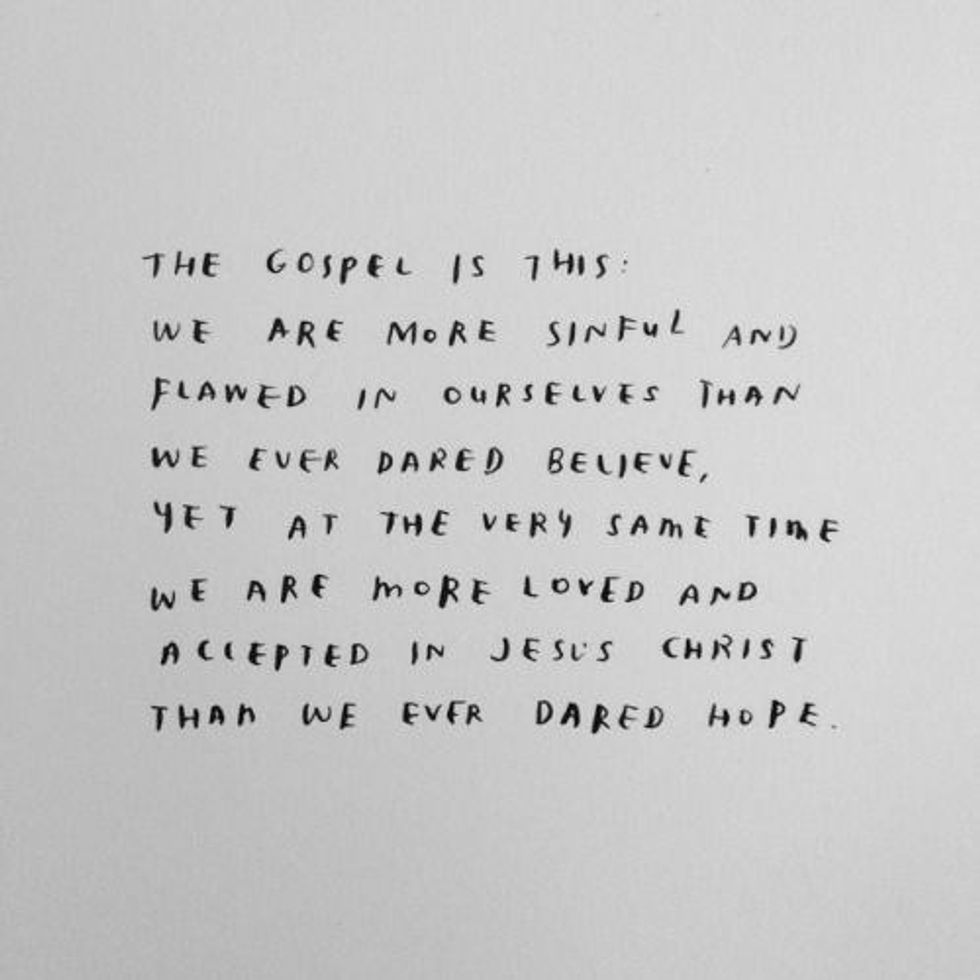 THE GOSPEL IS THIS:
WE ARE MORE SINFUL AND
FLAWED IN OURSELVES THAN
WE EVER DARED BELIEVE,
YET AT THE VERY SAME TIME
WE ARE MORE LOVED AND
ACCEPTED IN JESUS CHRIST
THAN WE EVER DARED HOPE.